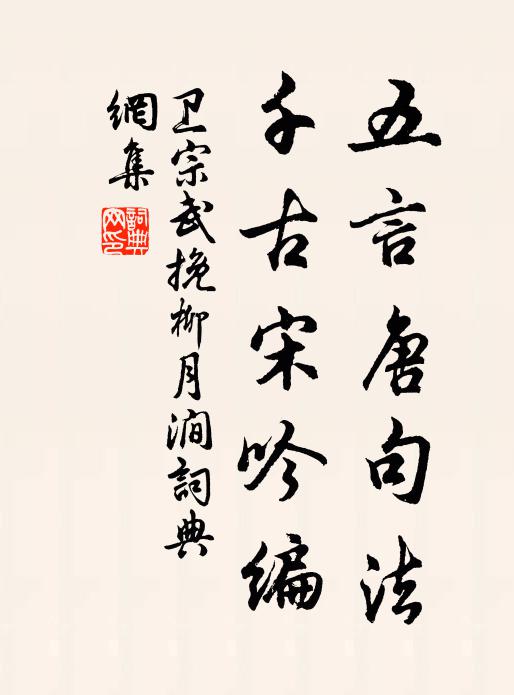 五言唐句法
千古宋吟编
卫宗武挽柳月涧詞典
網集
詞典網印